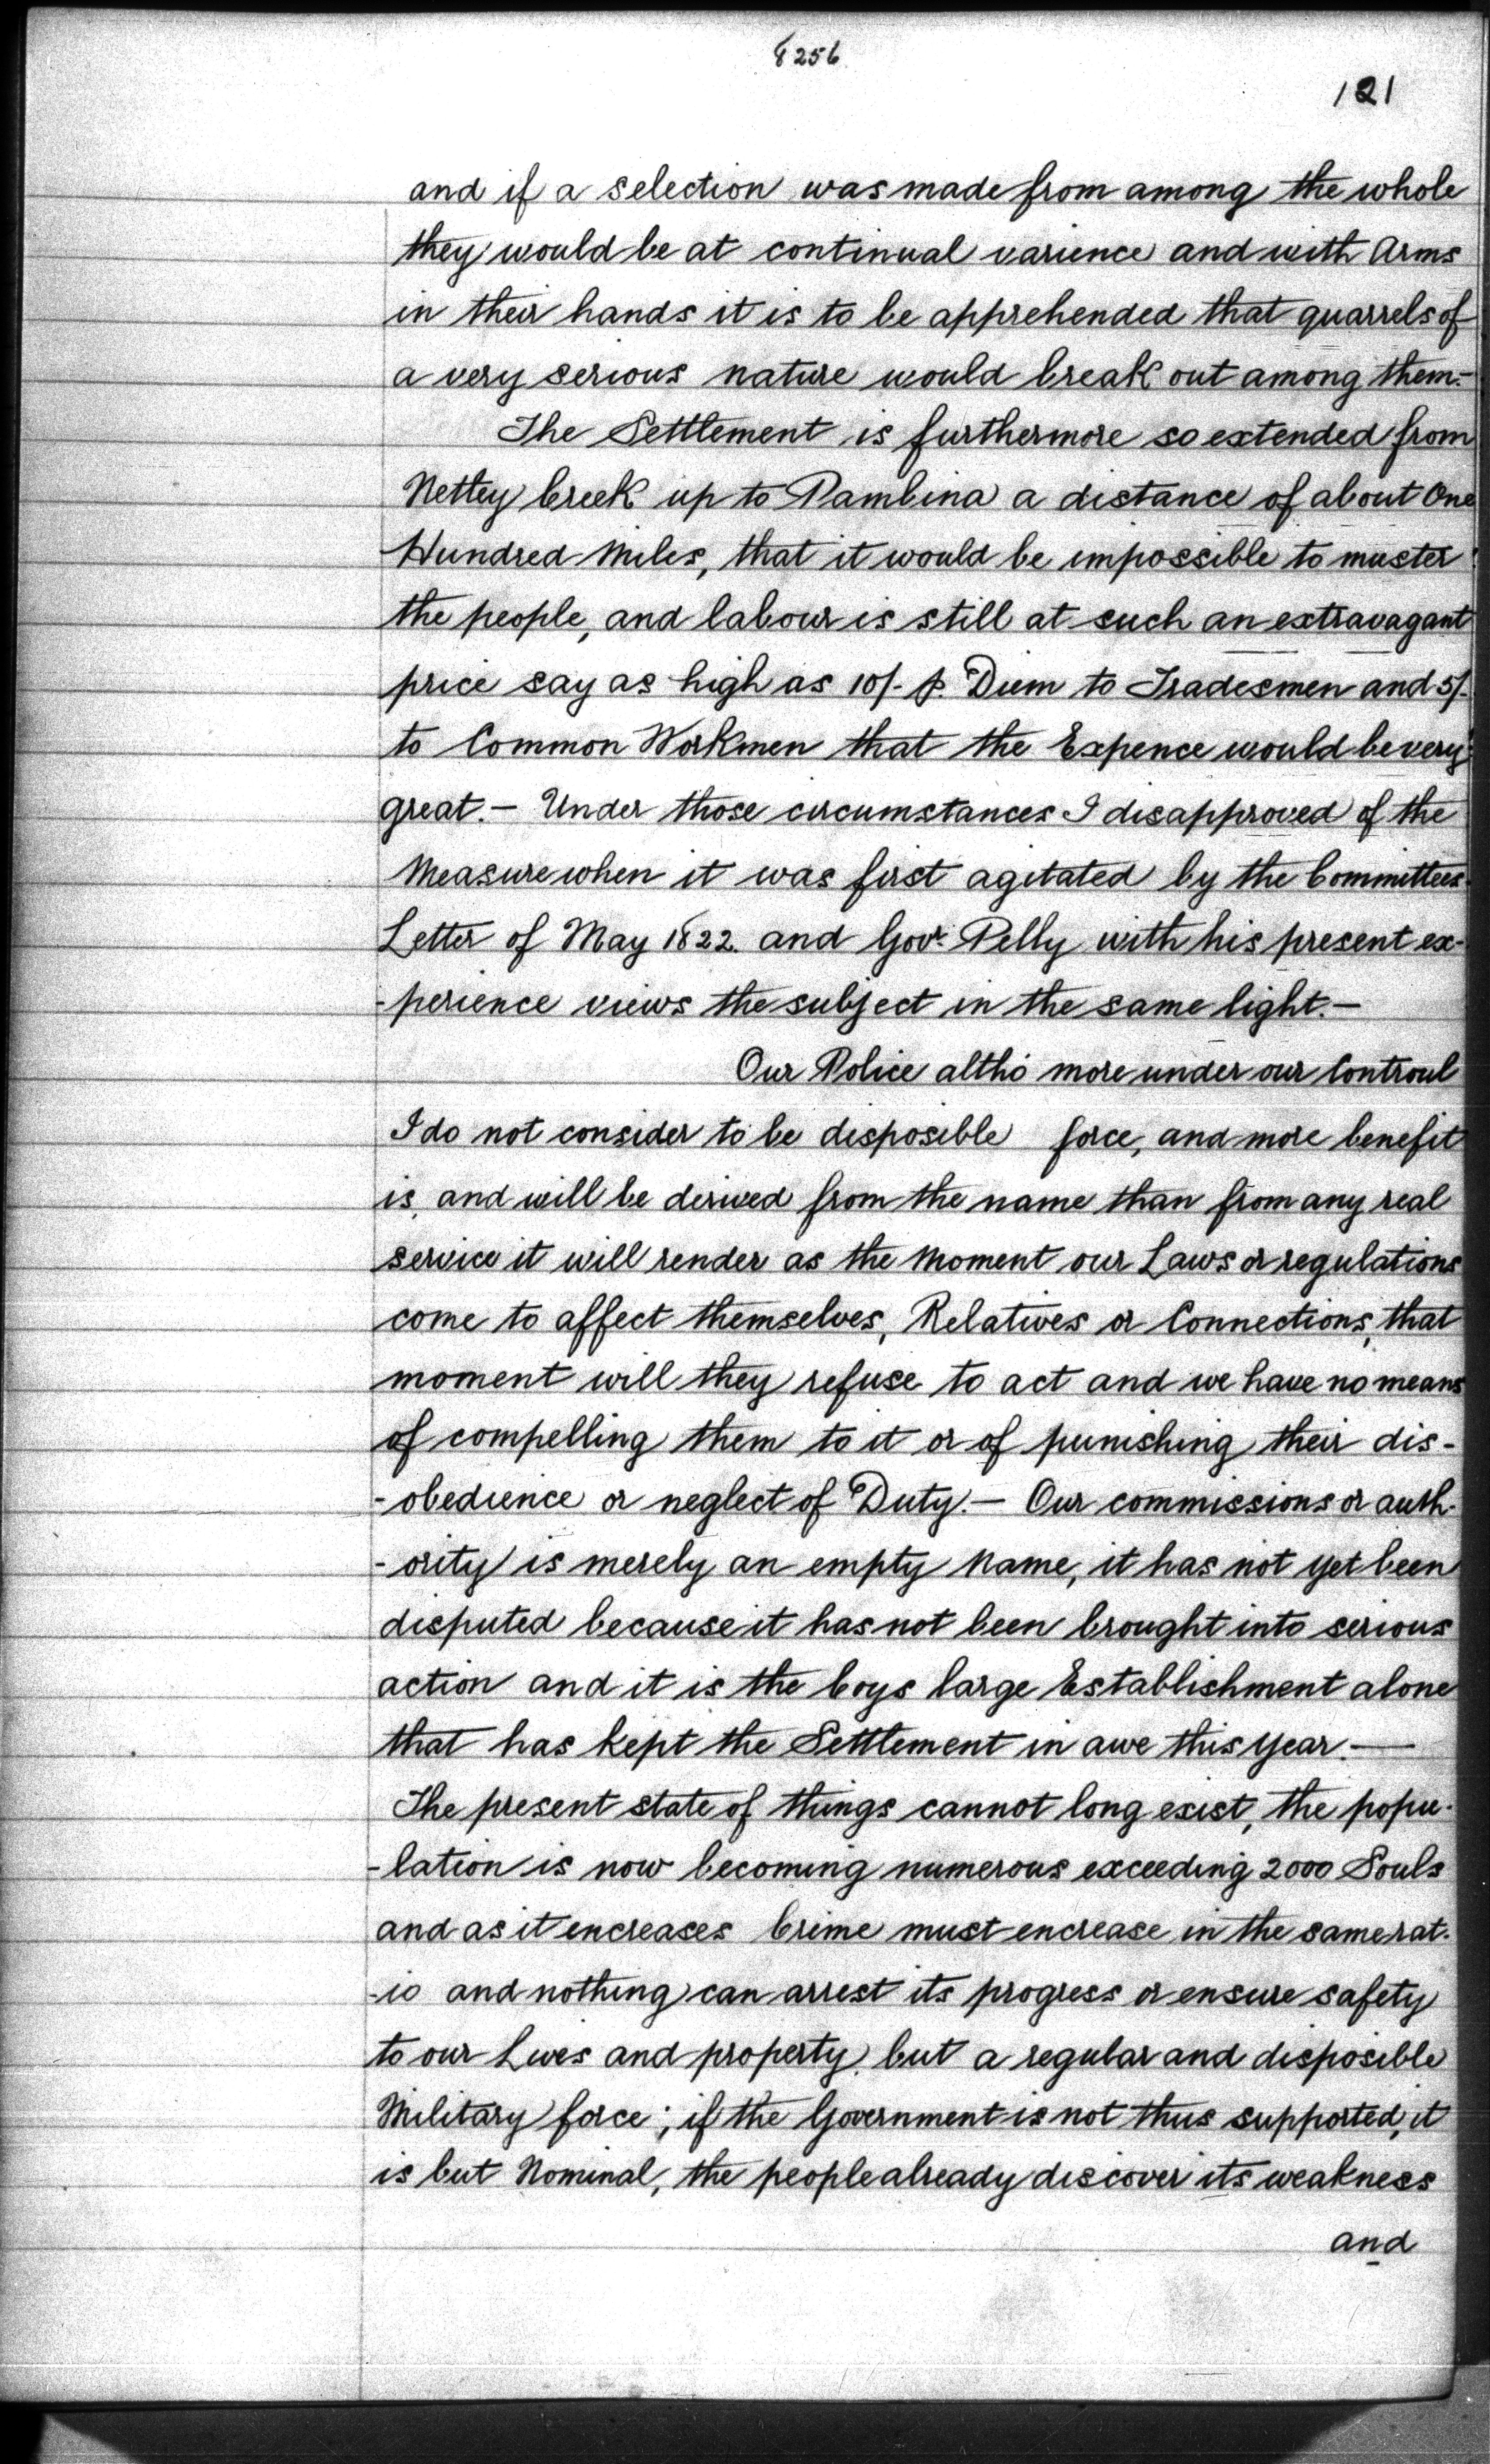 8256
121
and if a selection was made from among the whole
they would be at continual varience and with Arms
in their hands it is to be apprehended that quarrels of
a very serious nature would break out among them.-
The Settlement is furthermore so extended from
Nettey Creek up to Pambina a distance of about One
Hundred Miles, that it would be impossible to muster
the people, and labour is still at such an extravagant
price say as high as 10/- p. Diem to Tradesmen and 5/-
to Common Workmen that the Expence would be very
great.- Under those circumstances I disapproved of the
Measure when it was first agitated by the Committees
Letter of May 1822. and Govr. Pelly with his present ex-
-perience views the subject in the same light.-
Our Police altho' more under our Controul
I do not consider to be disposible force, and more benefit
is, and will be derived from the name than from any real
service it will render as the Moment our Laws or regulations
come to affect themselves, Relatives or Connections, that
moment will they refuse to act and we have no means
of compelling them to it or of punishing their dis-
-obedience or neglect of Duty.- Our commissions or auth-
-ority is merely an empty Name, it has not yet been
disputed because it has not been brought into serious
action and it is the Coys large Establishment alone
that has kept the Settlement in awe this year.-
The present state of things cannot long exist, the popu-
-lation is now becoming numerous exceeding 2000 Souls
and as it encreases Crime must encrease in the same rat-
-io and nothing can arrest its progress or ensure safety
to our Lives and property, but a regular and disposible
Military force; if the Government is not thus supported, it
is but Nominal, the people already discover its weakness
and